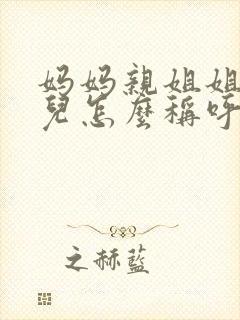 妈妈親姐姐
兒怎麼稱呼
之赫藍